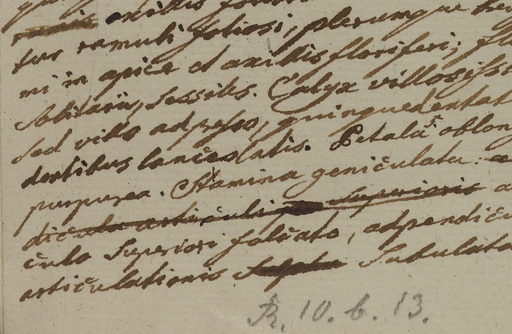 axillis
tus ramuli foliosi, plerumque
ni in apice et axillis floriferi;
solitarii, sessiles. Calyx villosiss
sed villo adpresso, quinquedentat
dentibus lanceolatis. Petala oblong
purpurea. Stamina geniculata
dicula articuli superioris a
culo superiori falcato, adpendicu
articulationis Subulata
R. 10. b. 13.